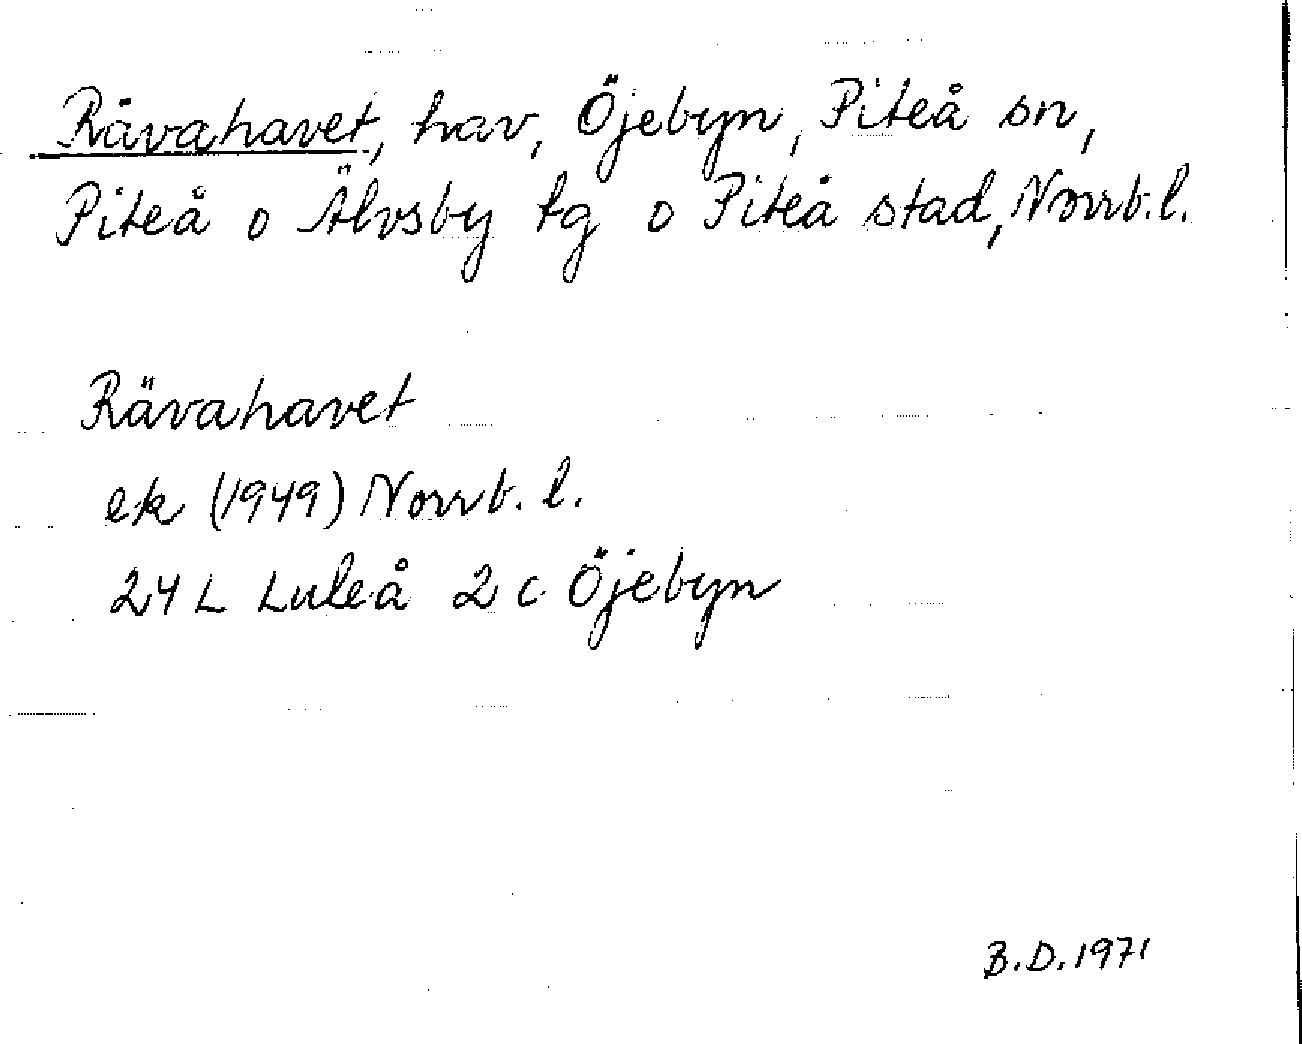 Rävahavet, hav, Öjebyn, Piteå sn,
Piteå o Älvsby tg o Piteå stad, Norrb. l.
Rävahavet
ek (1949) Norrb. l.
24 L Luleå 2 c Öjebyn
B.D. 1971